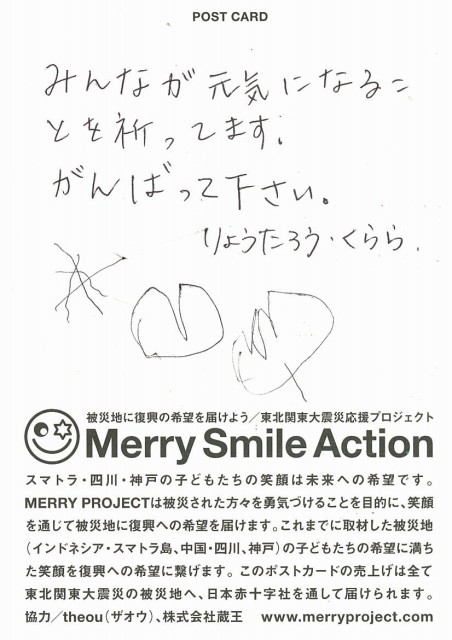 POST CARD
みんなが元気になるこ
とを祈ってます。
がんばって下さい。
りょうたろう・くらら.
被災地に復興の希望を届けよう／東北関東大震災応援プロジェクト
Merry Smile Action
スマトラ・四川・神戸の子どもたちの笑顔は未来への希望です。
MERRY PROJECTは被災された方々を勇気づけることを目的に、笑顔
を通じて被災地に復興への希望を届けます。これまでに取材した被災地
（インドネシア・スマトラ島、中国・四川、神戸）の子どもたちの希望に満ち
た笑顔を復興への希望に繋げます。このポストカードの売上げは全て
東北関東大震災の被災地へ、日本赤十字社を通して届けられます。
協力／theou（ザオウ）、株式会社蔵王　www.merryproject.com